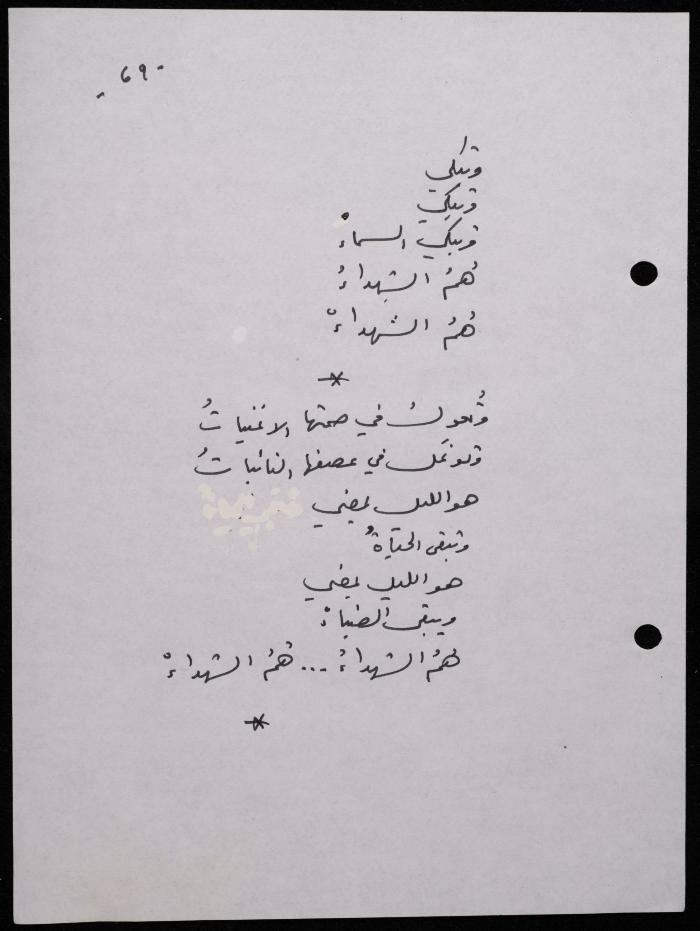 - ٦٩ -
وتبكي
وتبكي
وتبكي السماءْ
هُمُ الشهداءُ
هُمُ الشهداءْ
*
وتُعولُ في صمتها الأغنياتُ
وتوغل في عصفها النائباتُ
هو الليل يمضي
وتبقى الحياةُ
هو الليل يمضي
ويبقى الضياءْ
هُمُ الشهداءُ ... هُمُ الشهداءْ
*